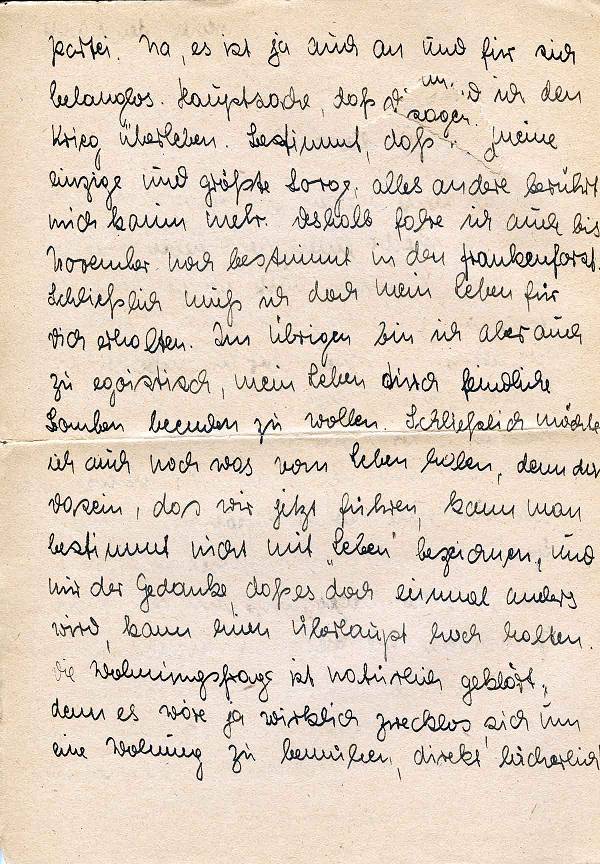 Partei. Na, es ist ja auch an und für sich
belanglos. Hauptsache, daß ich den
sagen
Krieg überleben. Bestimmt, daß meine
einzige und größte Sorge, alles andere berührt
mich kaum mehr. Deshalb fahre ich auch bis
November noch bestimmt in den Frankenforst.
Schließlich muß ich doch mein Leben für
Dich erhalten. Im Übrigen bin ich aber auch
zu egoistisch, mein Leben durch feindliche
Bomben beenden zu wollen. Schließlich möchte
ich auch noch was vom Leben haben, denn das
Dasein, das wir jetzt führen, kann man
bestimmt nicht mit "Leben" bezeichnen, und
nur der Gedanke daß es doch einmal anders
wird, kann einen überhaupt hoch halten.
Die Wohnungsfrage ist natürlich geklärt,
denn es wäre ja wirklich zwecklos, sich um
eine Wohnung zu bemühen, direkt lächerlich